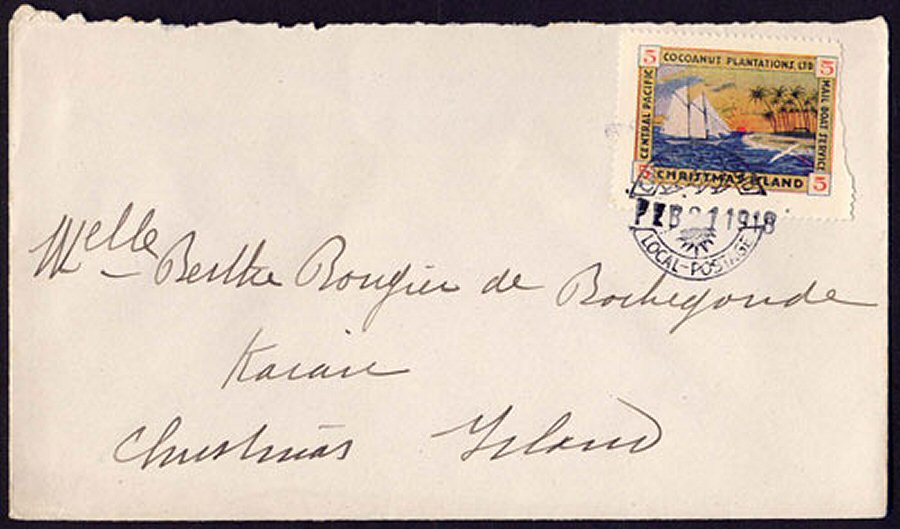 5 COCOANUT PLANTATIONS LTD 5
CENTRAL PACIFIC
MAIL BOAT SERVICE
5 CHRISTMAS ISLAND 5
FEB 21 1918
LOCAL-POSTAGE
Melle Berthe Rougier de Rochegonde
Christmas Island